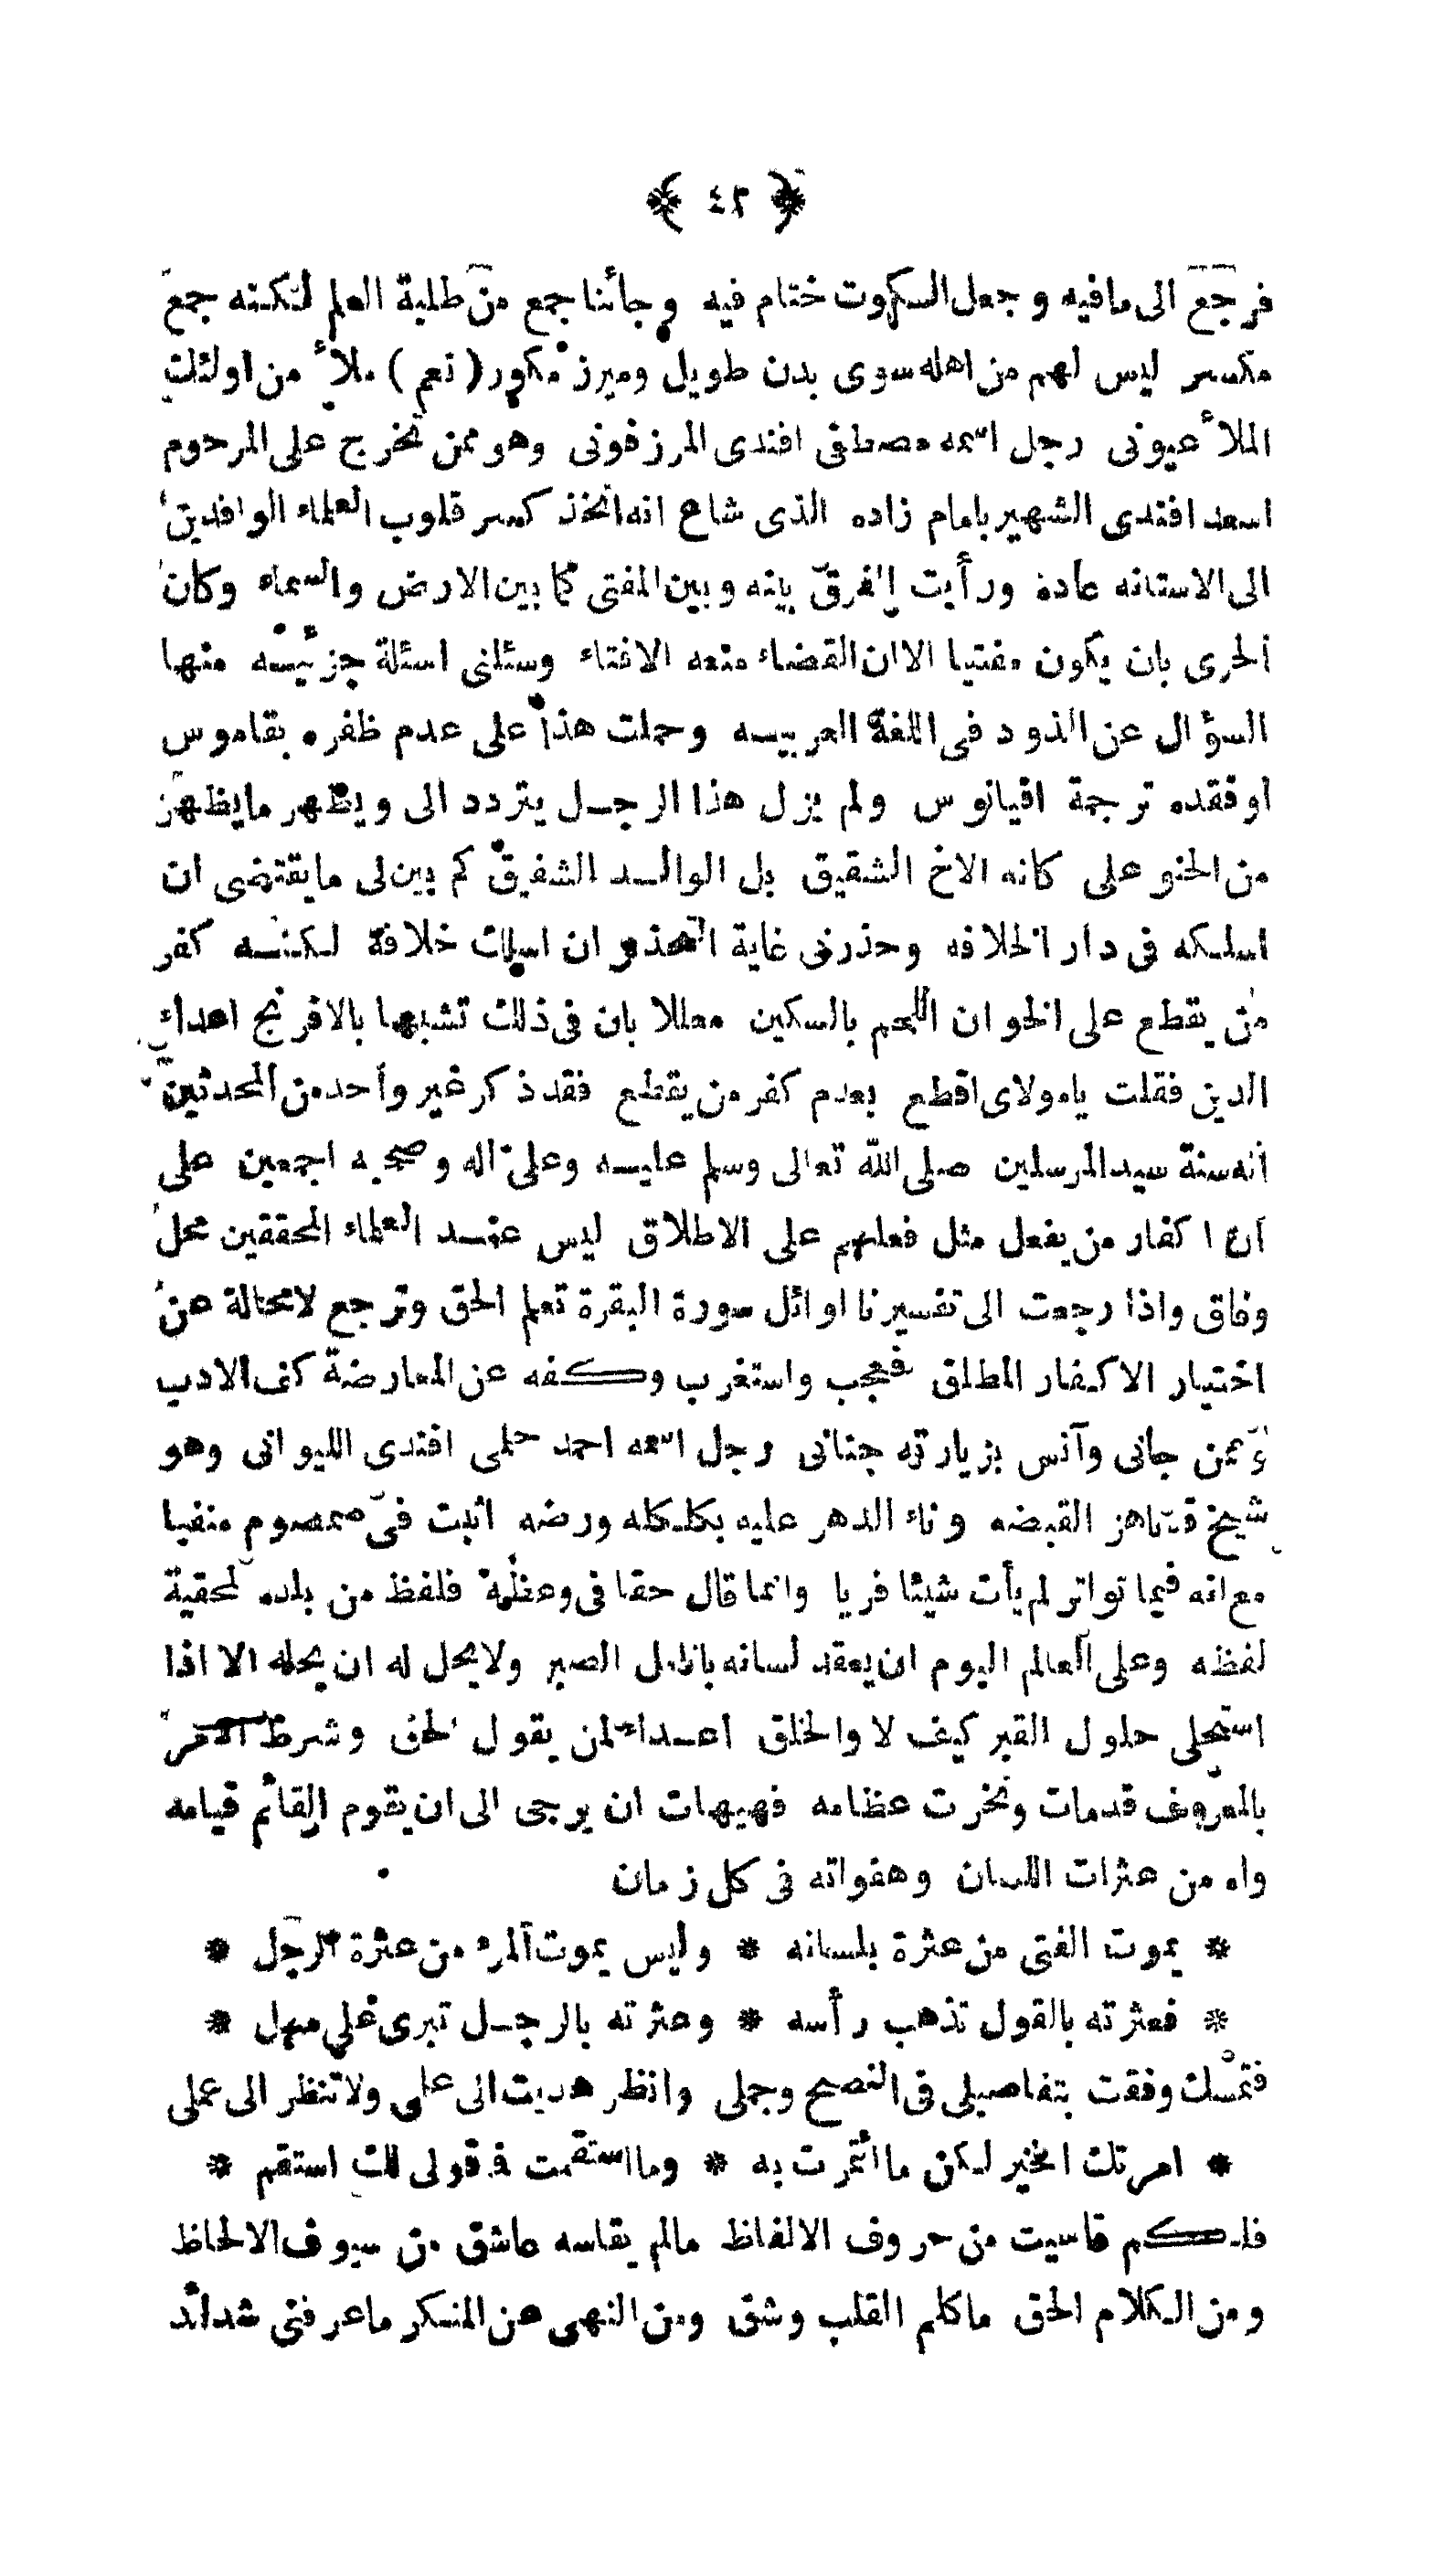 ﴿ ٤٢ ﴾
فرجع الى مافيه وجعل السكوت ختام فيه وجائنا جمع من طلبة العلم لكنه جمع
مكسر ليس لهم من اهله سوى بدن طويل وميرز مكور ( نعم ) ملأ من اولئك
الملأ عيونى رجل اسمه مصطفى افندى المرزفونى وهو ممن تخرج على المرحوم
اسعد افندى الشهير بامام زاده الذى شاع انه اتخذ كسر قلوب العلماء الوافدين
الى الاستانه عادة ورأيت الفرق بينه وبين المفتى كما بين الارض والسماء وكان
الحرى بان يكون مفتيا الا ان القضاء منعه الافتاء وسئلنى اسئلة جزئيه منها
السؤال عن الذود فى اللغة العربيه وحملت هذا على عدم ظفره بقاموس
او فقده ترجمة اقيانوس ولم يزل هذا الرجل يتردد الى ويظهر ما يظهر
من الحنو على كانه الاخ الشقيق بل الوالد الشفيق كم بين لى ما يقتضى ان
اسلكه فى دار الخلافه وحذرنى غاية الحذر ان اسلك خلافة لكنه كفر
من يقطع على الخوان اللحم بالسكين معللا بان فى ذلك تشبها بالافرنج اعداء
الدين فقلت يامولاى اقطع بعدم كفر من يقطع فقد ذكر غير واحد من المحدثين
انه سنة سيد المرسلين صلى الله تعالى وسلم عليه وعلى اله وصحبه اجمعين على
ان اكفار من يفعل مثل فعلهم على الاطلاق ليس عند العلماء المحققين محل
وفاق واذا رجعت الى تفسيرنا اوائل سورة البقرة تعلم الحق وترجع لامحالة عن
اختيار الاكفار المطلق فعجب واستغرب وكفه عن المعارضة كف الادب
وممن جانى وآنس بزيارته جنانى رجل اسمه احمد حلمى افندى الليوانى وهو
شيخ قد ناهز القبضه وناء الدهر عليه بكلكله ورضه اثبت فى معصوم منفيا
مع انه فيما تواتر لم يأت شيئا فريا وانما قال حقا فى وعظه فلفظ من بلده لحقية
لفظه وعلى العالم اليوم ان يعقد لسانه بانامل الصبر ولا يحل له ان يحله الا اذا
استحلى حلول القبر كيف لا والخلق اعداء لمن يقول الحق وشرط الامر
بالمعروف قدمات ونخرت عظامه فهيهات ان يرجى الى ان يقوم القائم قيامه
واه من عثرات اللسان وهفواته فى كل زمان
* يموت الفتى من عثرة بلسانه * وليس يموت المرء من عثرة الرجل *
* فعثرته بالقول تذهب رأسه * وعثرته بالرجل تبرى على مهل *
فتمسك وفقت بتفاصيلى فى النصح وجملى وانظر هديت الى على ولا تنظر الى عملى
* امرتك الخير لكن ما ائتمرت به * وما استقمت فا قولى لك استقم *
فلكم قاسيت من حروف الالفاظ مالم يقاسه عاشق من سيوف الالحاظ
ومن الكلام الحق ما كلم القلب وشق ومن النهى عن المنكر ما عرفنى شدائد